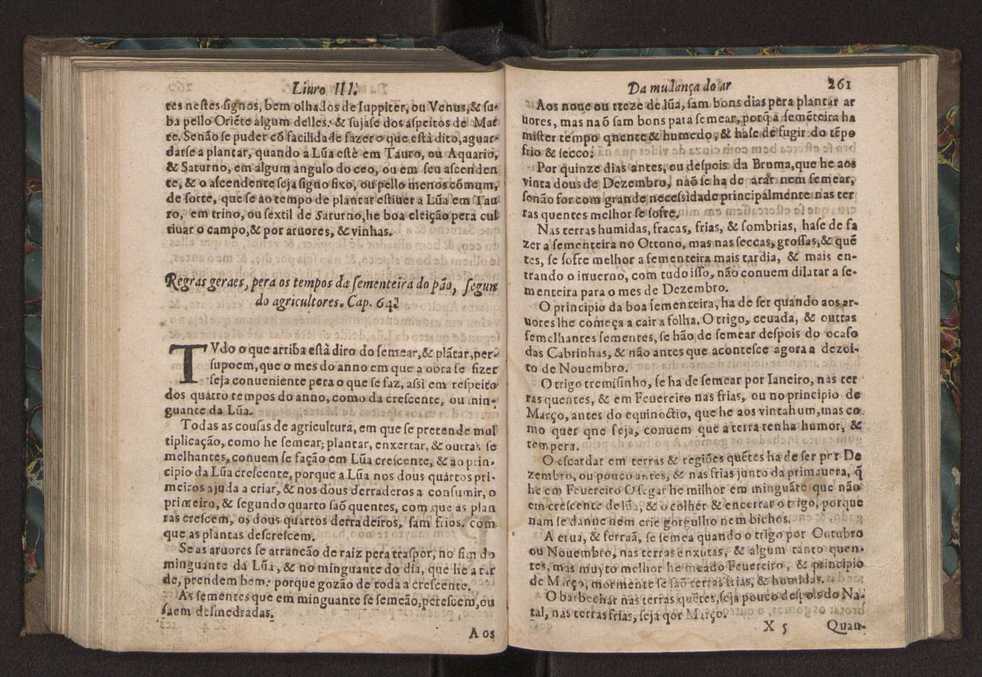 Liuro III.
tes nestes signos, bem olhados de Iuppiter, ou Venus, & su-
ba pello Oriẽte algum delles, & sujase dos aspeitos de Mar
te. Senão se puder cõ facilidade fazer o que està dito, aguar-
darse a plantar, quando a Lũa estè em Tauro, ou Aquario,
& Saturno, em algum angulo do ceo, ou em seu ascenden
te, & o ascendente seja signo fixo, ou pello menos cõmum,
de sorte, que se ao tempo de plantar estiuer a Lũa em Tau
ro, em trino, ou sextil de Saturno, he boa eleição pera cul
tiuar o campo, & por aruores, & vinhas.
Regras geraes, pera os tempos da sementeira do pão, segun
do agricultores. Cap. 64.
TVdo o que arriba està diro do semear, & plãtar, per
supoem, que o mes do anno em que a obra se fizer
seja conueniente pera o que se faz, assi em respeito
dos quatro tempos do anno, como da crescente, ou min-
guante da Lũa.
Todas as cousas de agricultura, em que se pretende mul
tiplicação, como he semear, plantar, enxertar, & outras se
melhantes, conuem se fação em Lũa crescente, & ao prin-
cipio da Lũa crescente, porque a Lũa nos dous quartos pri-
meiros ajuda a criar, & nos dous derraderos a consumir, o
primeiro, & segundo quarto saõ quentes, com que as plan
tas crescem, os dous quartos derradeiros, sam frios, com
que as plantas descrescem.
Se as aruores se arrancão de raiz pera traspor, no fim do
minguante da Lũa, & no minguante do dia, que he a tar
de, prendem bem: porque gozão de toda a crescente.
As sementes que em minguante se semeão, perescem, ou
saem desmedradas.
Aos
Da mudança do ar 261
Aos noue ou treze de lũa, sam bons dias pera plantar ar
uores, mas naõ sam bons pata semear, porq̃ a semẽteira ha
mister tempo quente & humedo, & hase de fugir do tẽpo
frio & secco.
Por quinze dias antes, ou despois da Bruma, que he aos
vinta dous de Dezembro, não se ha de arar nem semear,
senão for com grande necessidade principalmente nas ter
ras quentes melhor se sofre.
Nas terras humidas, fracas, frias, & sombrias, hase de fa
zer a sementeira no Ottono, mas nas seccas, grossas, & quẽ
tes, se sofre melhor a sementeira mais tardia, & mais en-
trando o inuerno, com tudo isso, não conuem dilatar a se-
menteira para o mes de Dezembro.
O principio da boa sementeira, ha de ser quando aos ar-
uores lhe começa a cair a folha. O trigo, ceuada, & outras
semelhantes sementes, se hão de semear despois do ocaso
das Cabrinhas, & não antes que acontesce agora a dezoi-
to de Nouembro.
O trigo tremisinho, se ha de semear por Ianeiro, nas ter
ras quentes, & em Feuereiro nas frias, ou no principio de
Março, antes do equinoctio, que he aos vinta hum, mas co
mo quer que seja, conuem que a terra tenha humor, &
tempera.
O escardar em terras & regiões quẽtes ha de ser prr De
zembro, ou pouco antes, & nas frias junto da primauera, q̃
he em Feuereiro O segar he milhor em minguãte que não
em crescente de lũa, & o colher & encerrar o trigo, porque
nam se danne nem crie gorgulho nem bichos.
A erua, & ferraã, se semea quando o trigo por Outubro
ou Nouembro, nas terras enxutas, & algum tanto quen-
tes, mas muyto melhor he meado Feuereiro, & principio
de Março, mormente se saõ terras frias, & humidas.
O barbechar nas terras quẽtes, seja pouco despois do Na-
tal, nas terras frias, seja por Março.
X 5 Quan-